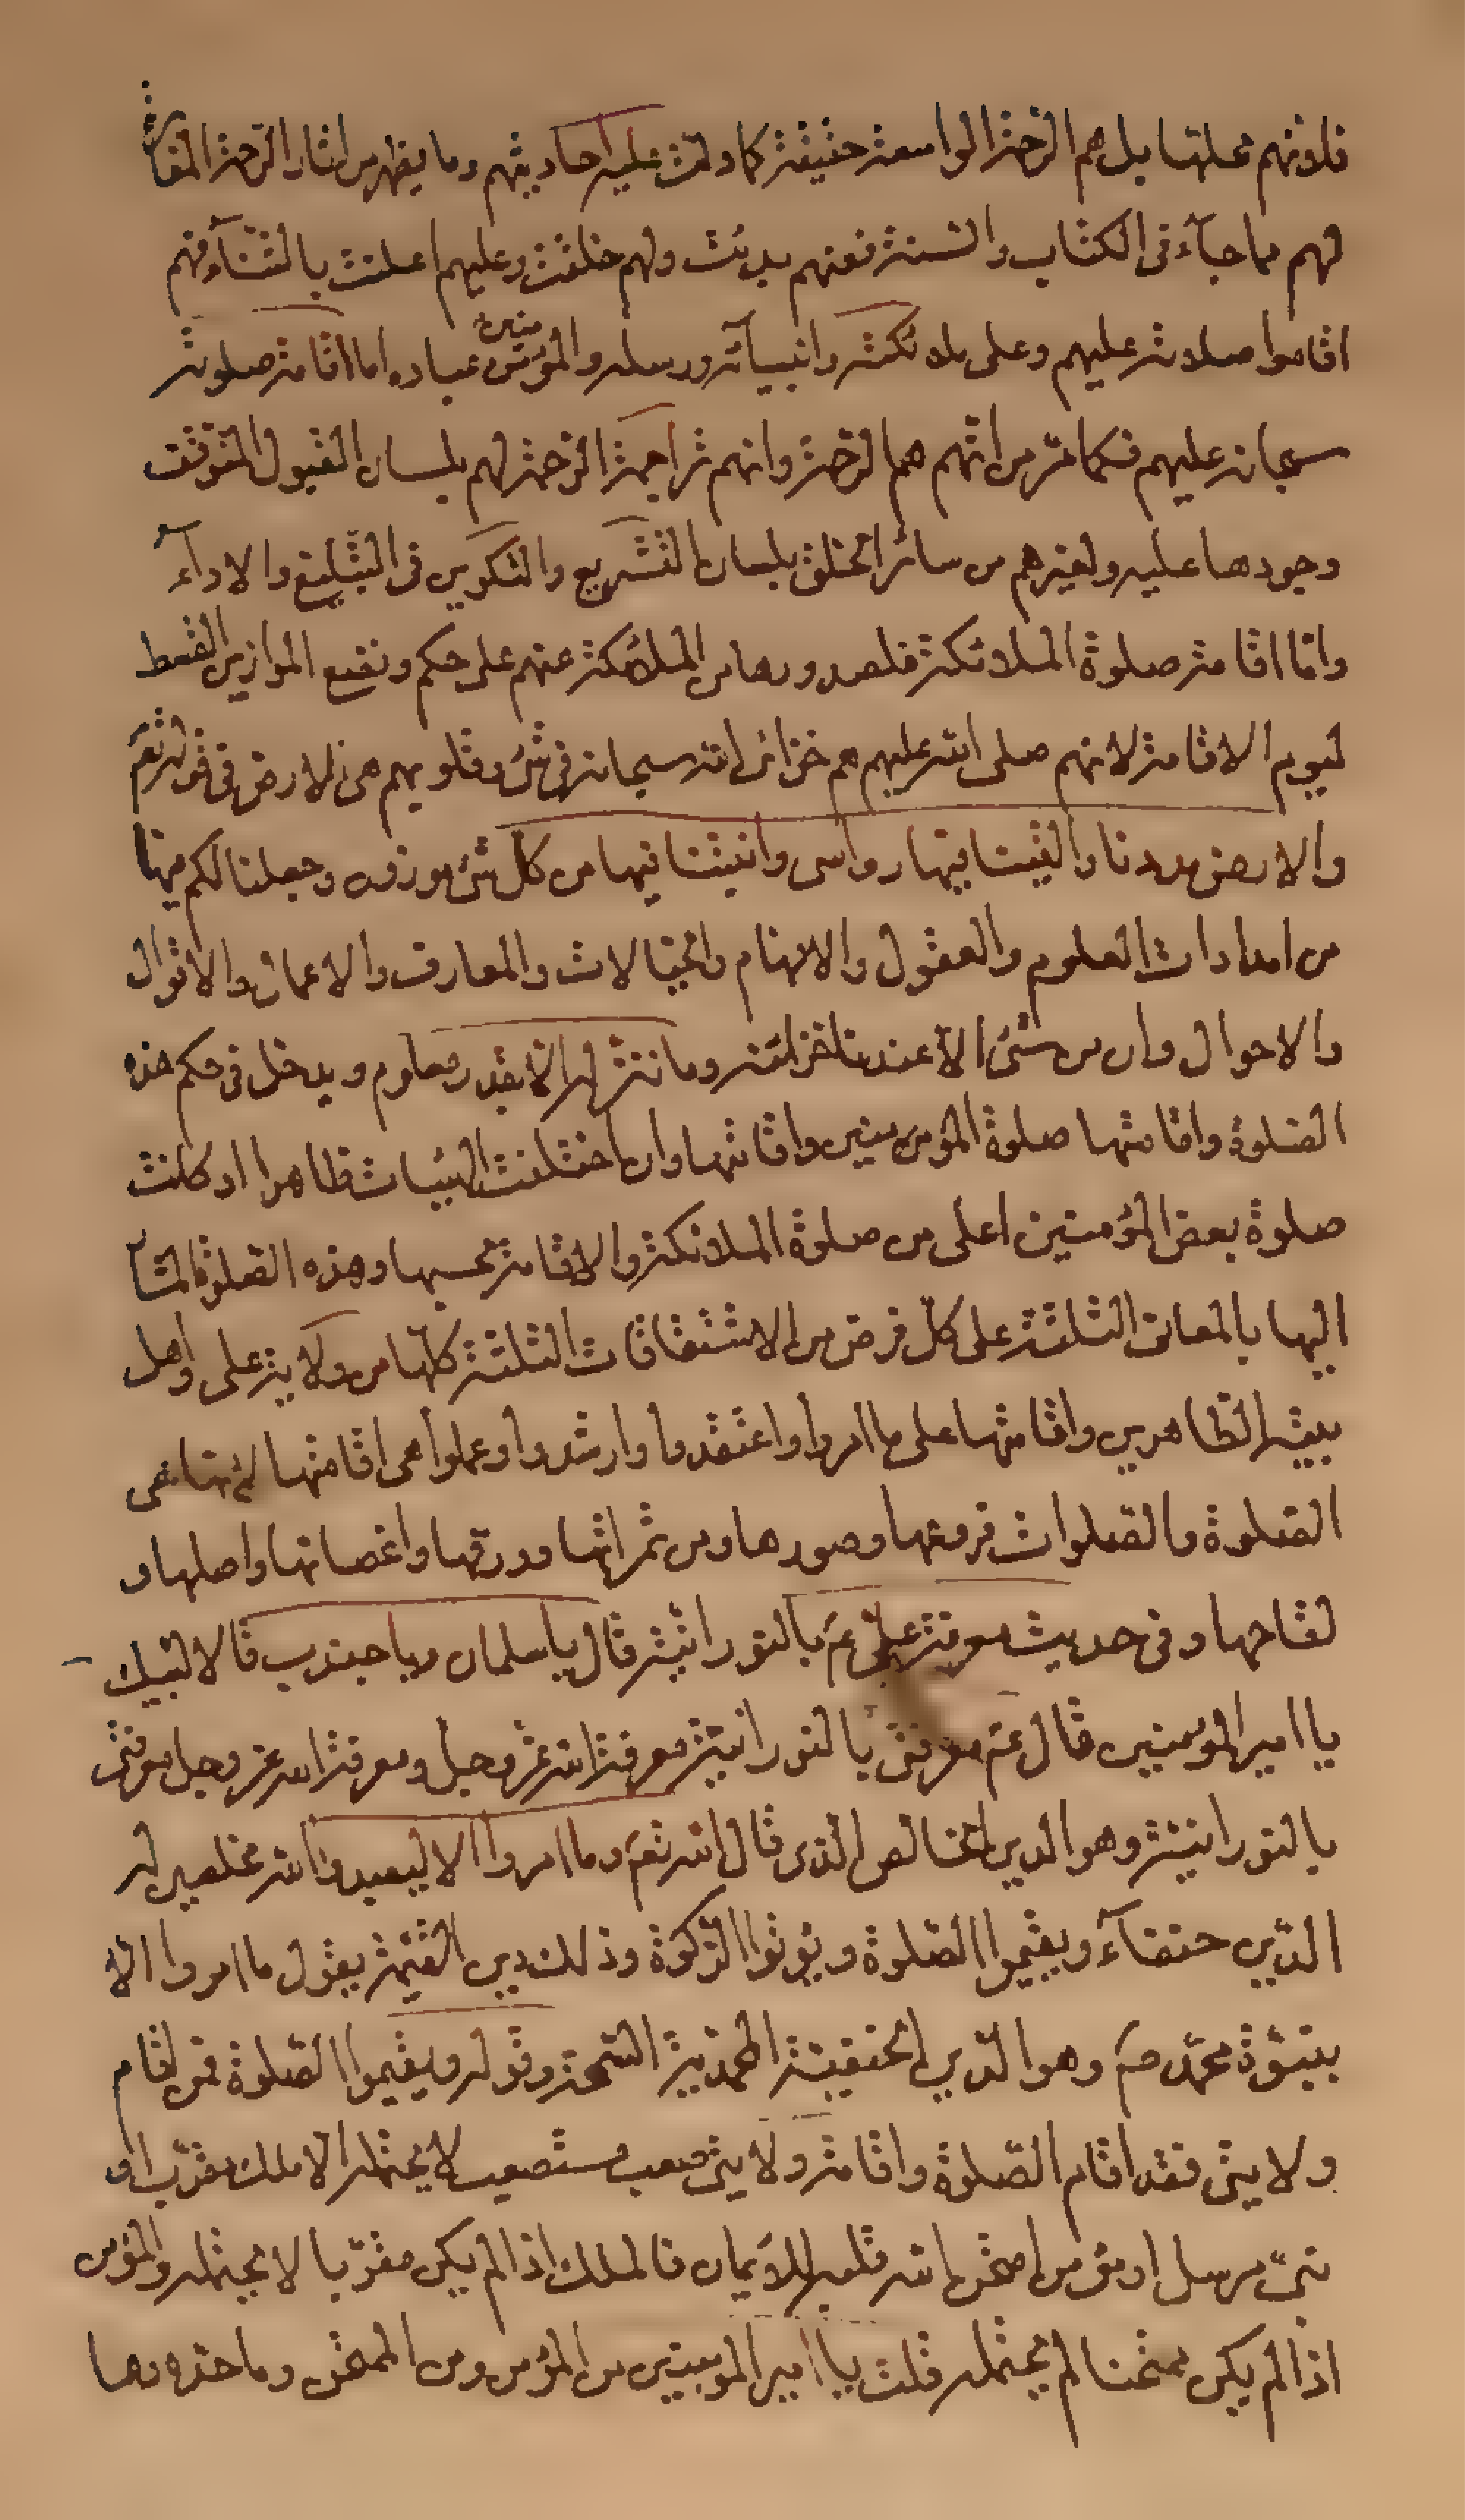 فلانهم محلها بل هم الرحمة الواسعة حقيقة كما دلت عليه احاديثهم وما يظهر من اثار الرحمة المقارنة
لهم مما جآء في الكتاب والسنة فعنهم بدئت ولهم خلقت وعليهم اعلنت بالثنآء فهم
اقاموا صلاته عليهم وعلى ملائكته وانبيائه ورسله والمؤمنين من عباده اما اقامة صلوته
سبحانه عليهم فكما مر من انهم هم الرحمة وانهم تراجمة الرحمة لهم بلسان القبول المتوقف
وجودها عليه ولغيرهم من سائر الخلق بلسان التشريع والتكوين في التبليغ والادآء
وامّا اقامة صلوة الملائكة فلصدورها من الملائكة عنهم على حكم ونضع الموازين القسط
ليوم الاقامة لانهم صلى الله عليهم هم خزائن الله سبحانه في شئ وقلوبهم هي الارض في قوله تعم
والارض مددنا والقينا فيها رواسى وانبتنا فيها من كل شئ موزون وجعلنا لكم فيها
من امدادات العلوم والعقول والافهام والخيالات والمعارف والاعمال والاقوال
والاحوال وان من شئ الا عندنا خزائنه وما ننزله الا بقدر معلوم ويدخل في حكم هذه
الصلوة واقامتها صلوة المؤمنين واقامتها وان اختلفت الهيئات ظاهرا او كانت
صلوة بعض المؤمنين اعلى من صلوة الملائكة والاقامة بحسبها وهذه الصلوة المشار
اليها بالمعانى الثلثة على كل فرض من الاشتقاقات الثلثة كلها من ولاية على واهل
بيته الطاهرين واقامتها على ما امروا واعتقدوا وارشدوا وعملوا هى اقامتها لانها هى
الصلوة والصلوات فروعها وصورها ومن ثمراتها وورقها واغصانها واصلها و
لقاحها وفى حديث معرفة على عم بالنورانية قال يا سلمان ويا جندب قالا لبيك
يا امير المؤمنين قال عم معرفتى بالنورانية معرفة الله عز وجل ومعرفة الله عز وجل معرفتى
بالنورانية وهو الدين الخالص الذى قال الله تعم وما امروا الا ليعبدوا الله مخلصين له
الدين حنفآء ويقيموا الصلوة ويؤتوا الزكوة وذلك دين القيّمة يقول ما امروا الا
بنبوّة محمّد صم وهو الدين الحنيفية المحمدية السمحة وقوله ويقيموا الصلوة فمن اقام
ولايتى فقد اقام الصلوة واقامة ولايتى صعب مستصعب لا يحتمله الا ملك مقرّب او
نبىّ مرسل او مؤمن امتحن الله قلبه للايمان فالملك اذا لم يكن مقرّبا لا يحتمله والمؤمن
اذا لم يكن ممتحنا لم يحتمله قلت يا امير المؤمنين من المؤمن ومن الممتحن وما حدّه وما